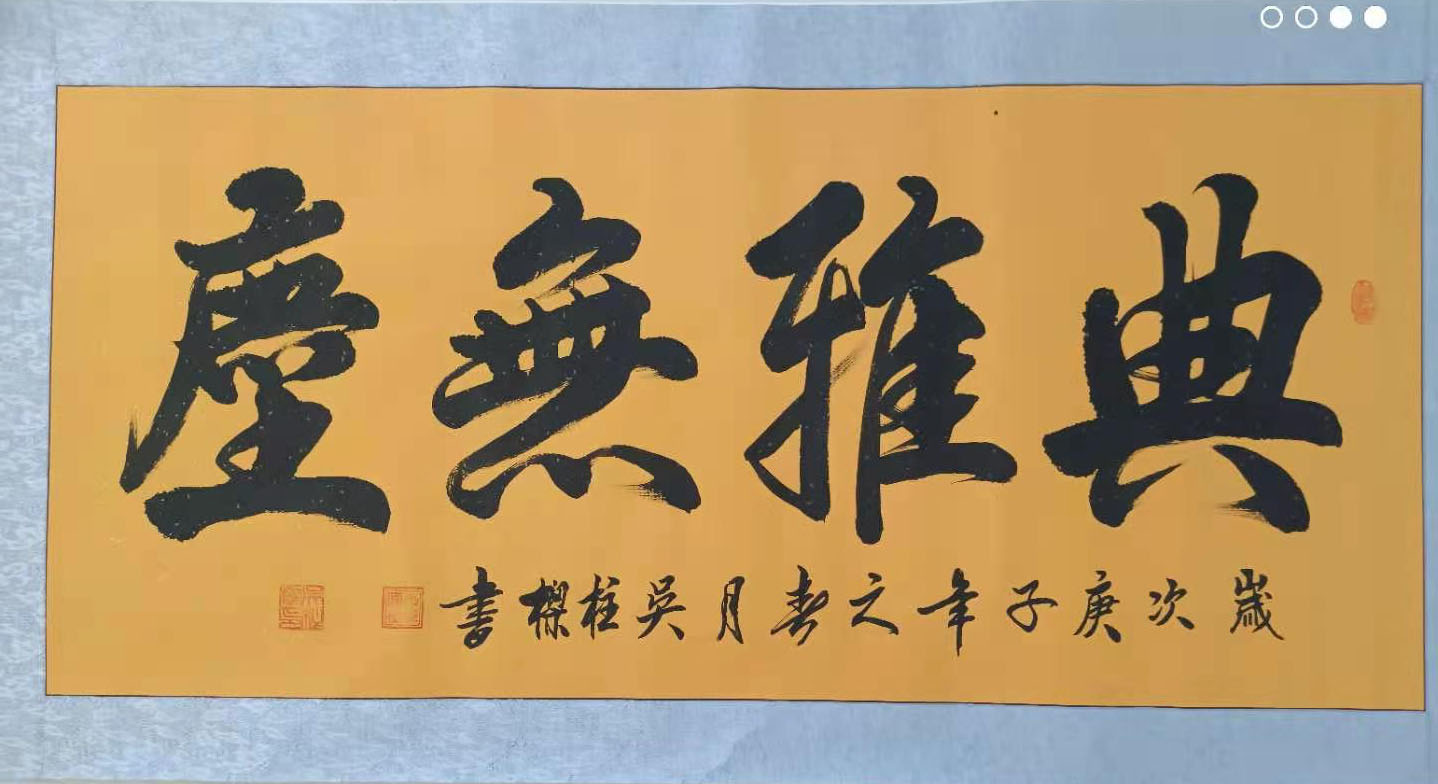 典雅無塵
歲次庚子年之春月吳柱樑書